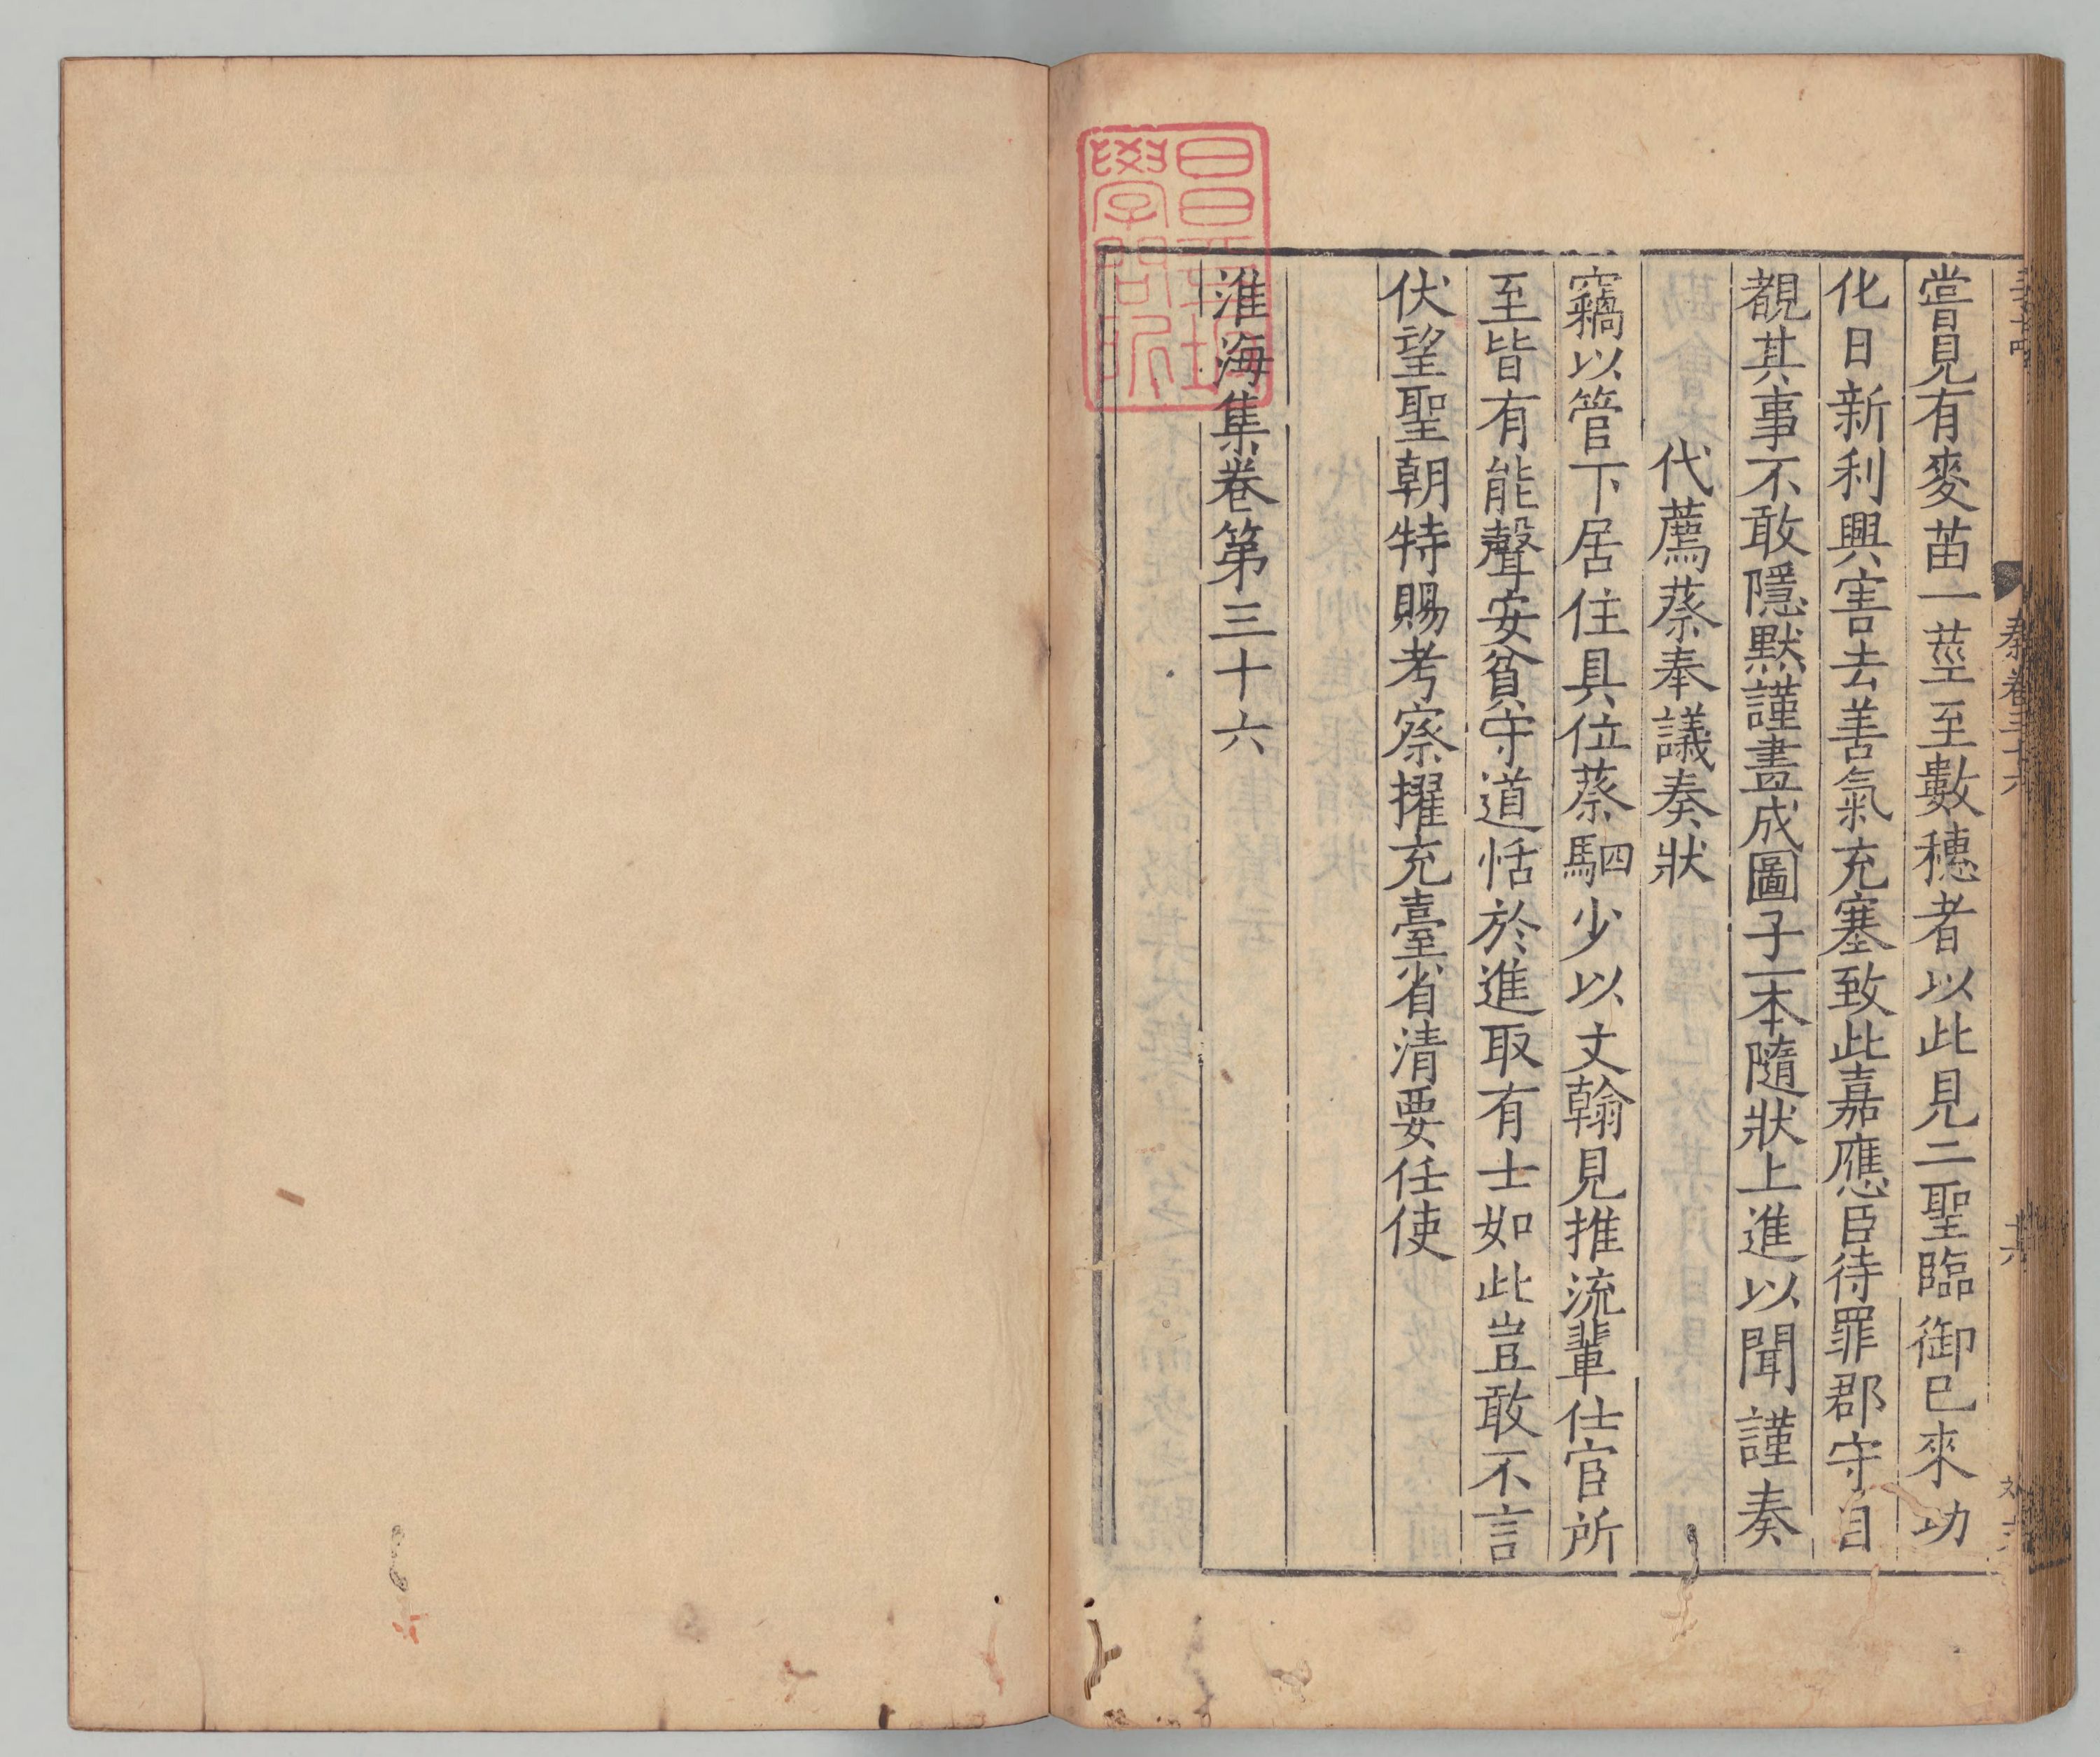 嘗見有麥苗一莖至數穗者以此見二聖臨御已來功
化日新利興害去善氣充塞致此嘉應臣待罪郡守目
覩其事不敢隱默謹畫成圖子一本隨狀上進以聞謹奏
代薦蔡奉議奏狀
竊以管下居住具位蔡駟少以文翰見推流輩仕宦所
至皆有能聲安貧守道恬於進取有士如此豈敢不言
伏望聖朝特賜考察擢充臺省清要任使
淮海集卷第三十六
秦卷三十六
十六
昌平坂
學問所